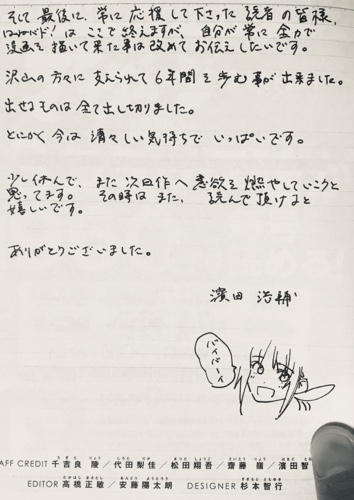 そして最後に、常に応援して下さった読者の皆様、
はねバド！はここで終えますが、自分が常に全力で
漫画を描いて来た事は改めてお伝えしたいです。
沢山の方々に支えられて6年間を歩む事が出来ました。
出せるものは全て出し切りました。
とにかく今は清々しい気持ちでいっぱいです。
少し休んで、また次回作へ意欲を燃やしていこうと
思ってます。その時はまた、読んで頂けると
嬉しいです。
ありがとうございました。
濱田浩輔
バイバーイ
AFF CREDIT 千吉良 陵／代田梨佳／松田翔吾／齋藤 嶺／濱田智
EDITOR 高橋正敏／安藤陽太朗 DESIGNER 杉本智行